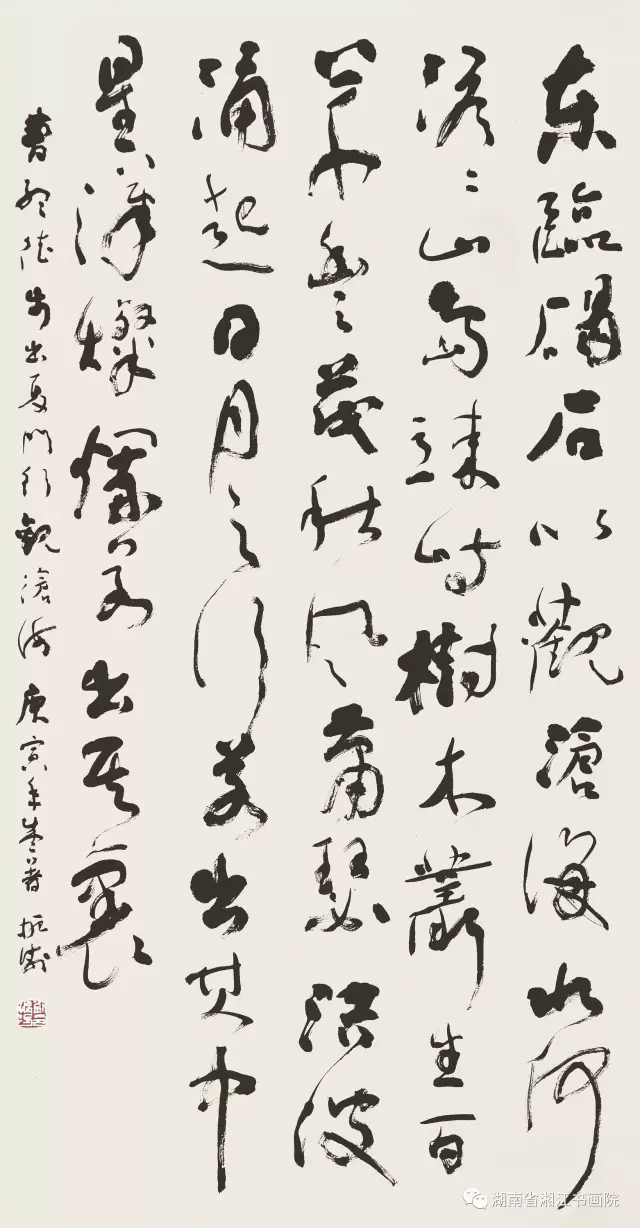 东臨碣石以觀滄海水何
澹〻山島竦峙樹木叢生百
草豐茂秋風蕭瑟洪波
涌起日月之行若出其中
星漢燦爛若出其裏
曹孟德步出夏門行觀滄海庚寅年
湖南省湘江书画院